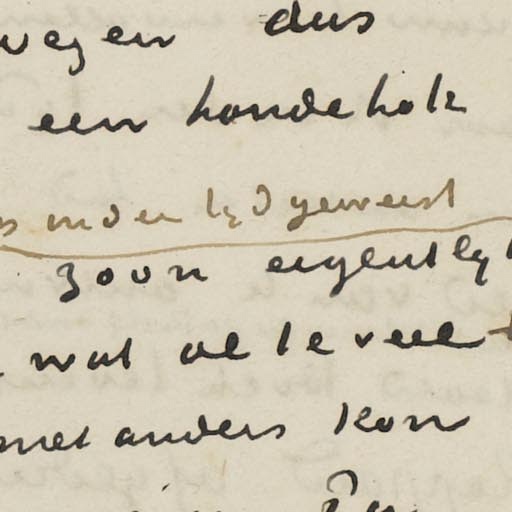 wegen dus
een hondehok
in den tijd geweest
zoon eigentlyk
wat al te veel
niet anders kon